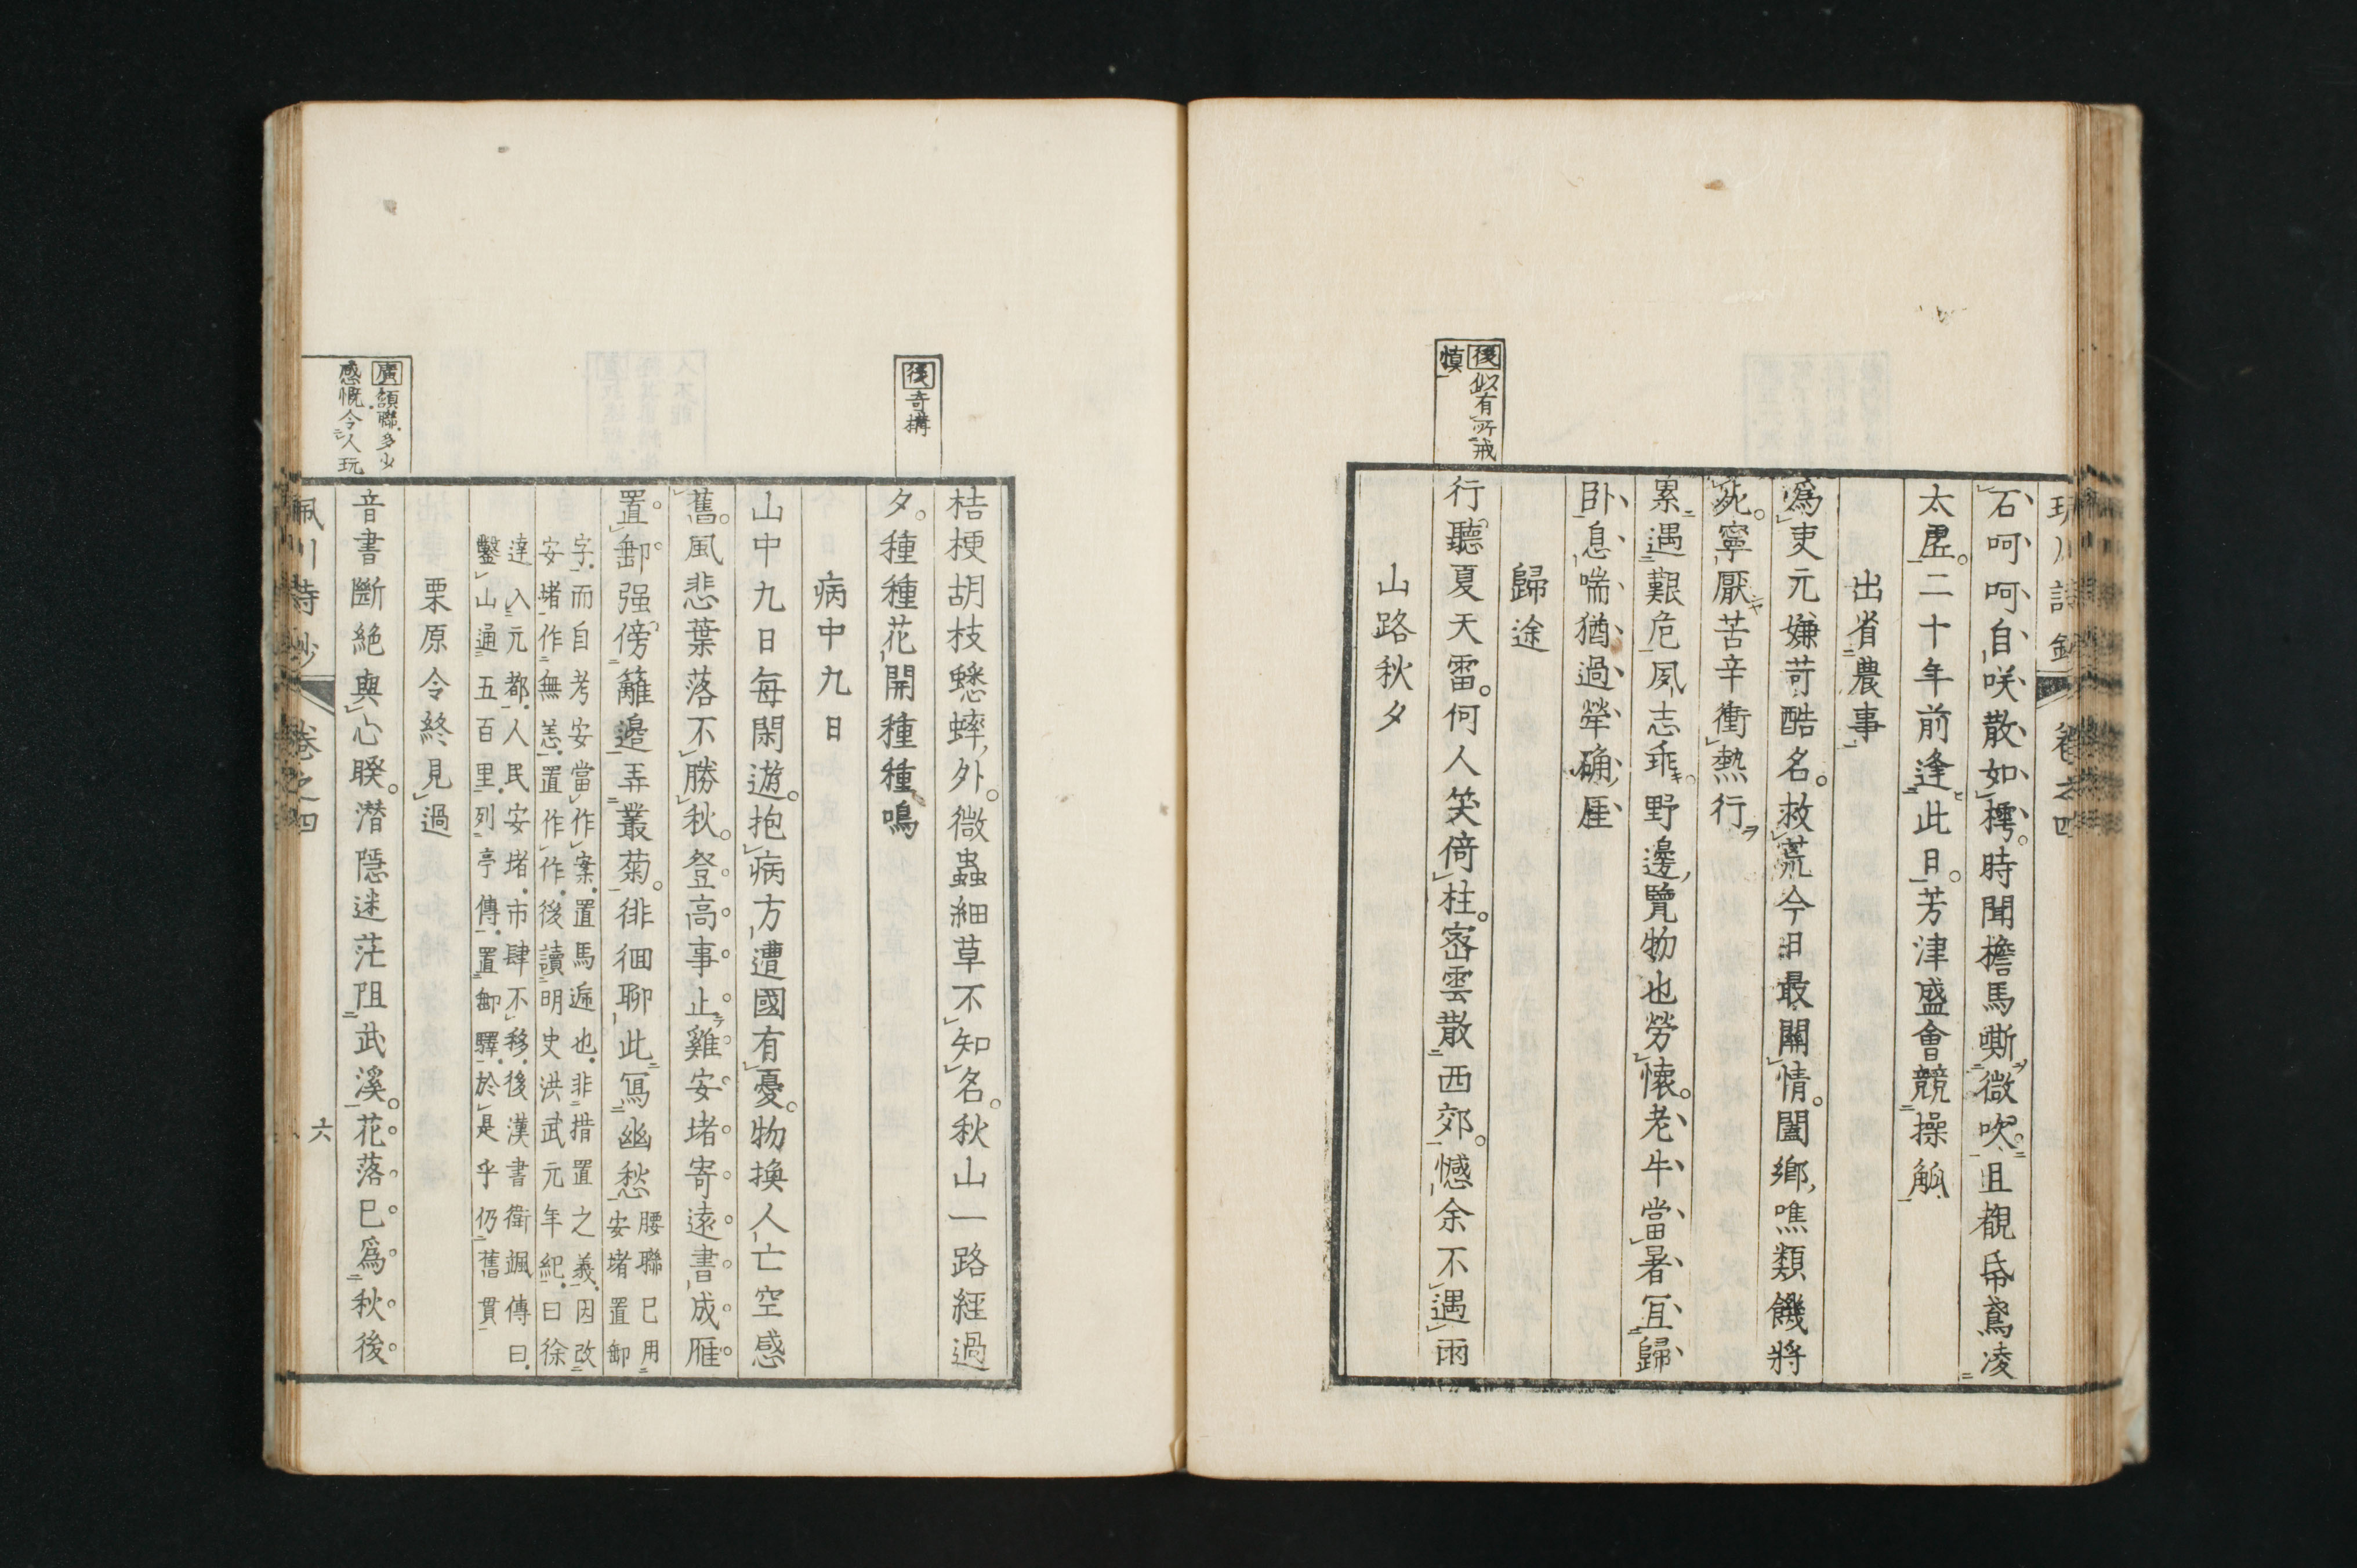 石呵呵自咲散如樗時聞檐馬嘶微吹且覩帋鳶凌
太虛二十年前逢此日芳津盛會競操觚
出省農事
爲吏元嫌苛酷名救荒今日最關情闔鄉噍類饑將
死寧厭苦辛衝熱行
累遇艱危夙志乖野邊覽物也勞懷老牛當暑宜歸
臥息喘猶過犖确厓
歸途
後似有所戒
慎
行聽夏天雷何人笑倚柱密雲散西郊憾余不遇雨
山路秋夕
桔梗胡枝蟋蟀外微蟲細草不知名秋山一路經過
後奇搆
夕種種花開種種鳴
病中九日
山中九日每閑遊抱病方遭國有憂物換人亡空感
舊風悲葉落不勝秋登高事止雞安堵寄遠書成雁
置郵强傍籬邉弄叢菊徘徊聊此寫幽愁
腰聯已用
安堵置郵
字而自考安當作案置馬遞也非措置之義因改
安堵作無恙置作作後讀明史洪武元年紀曰徐
達入元都人民安堵市肆不移後漢書衛颯傳曰
鑿山通五百里列亭傳置郵驛於是乎仍舊貫
栗原令終見過
廣頷聯多少
感慨令人玩
音書斷絕與心睽潛隱迷茫阻武溪花落已爲秋後
卷之四
六